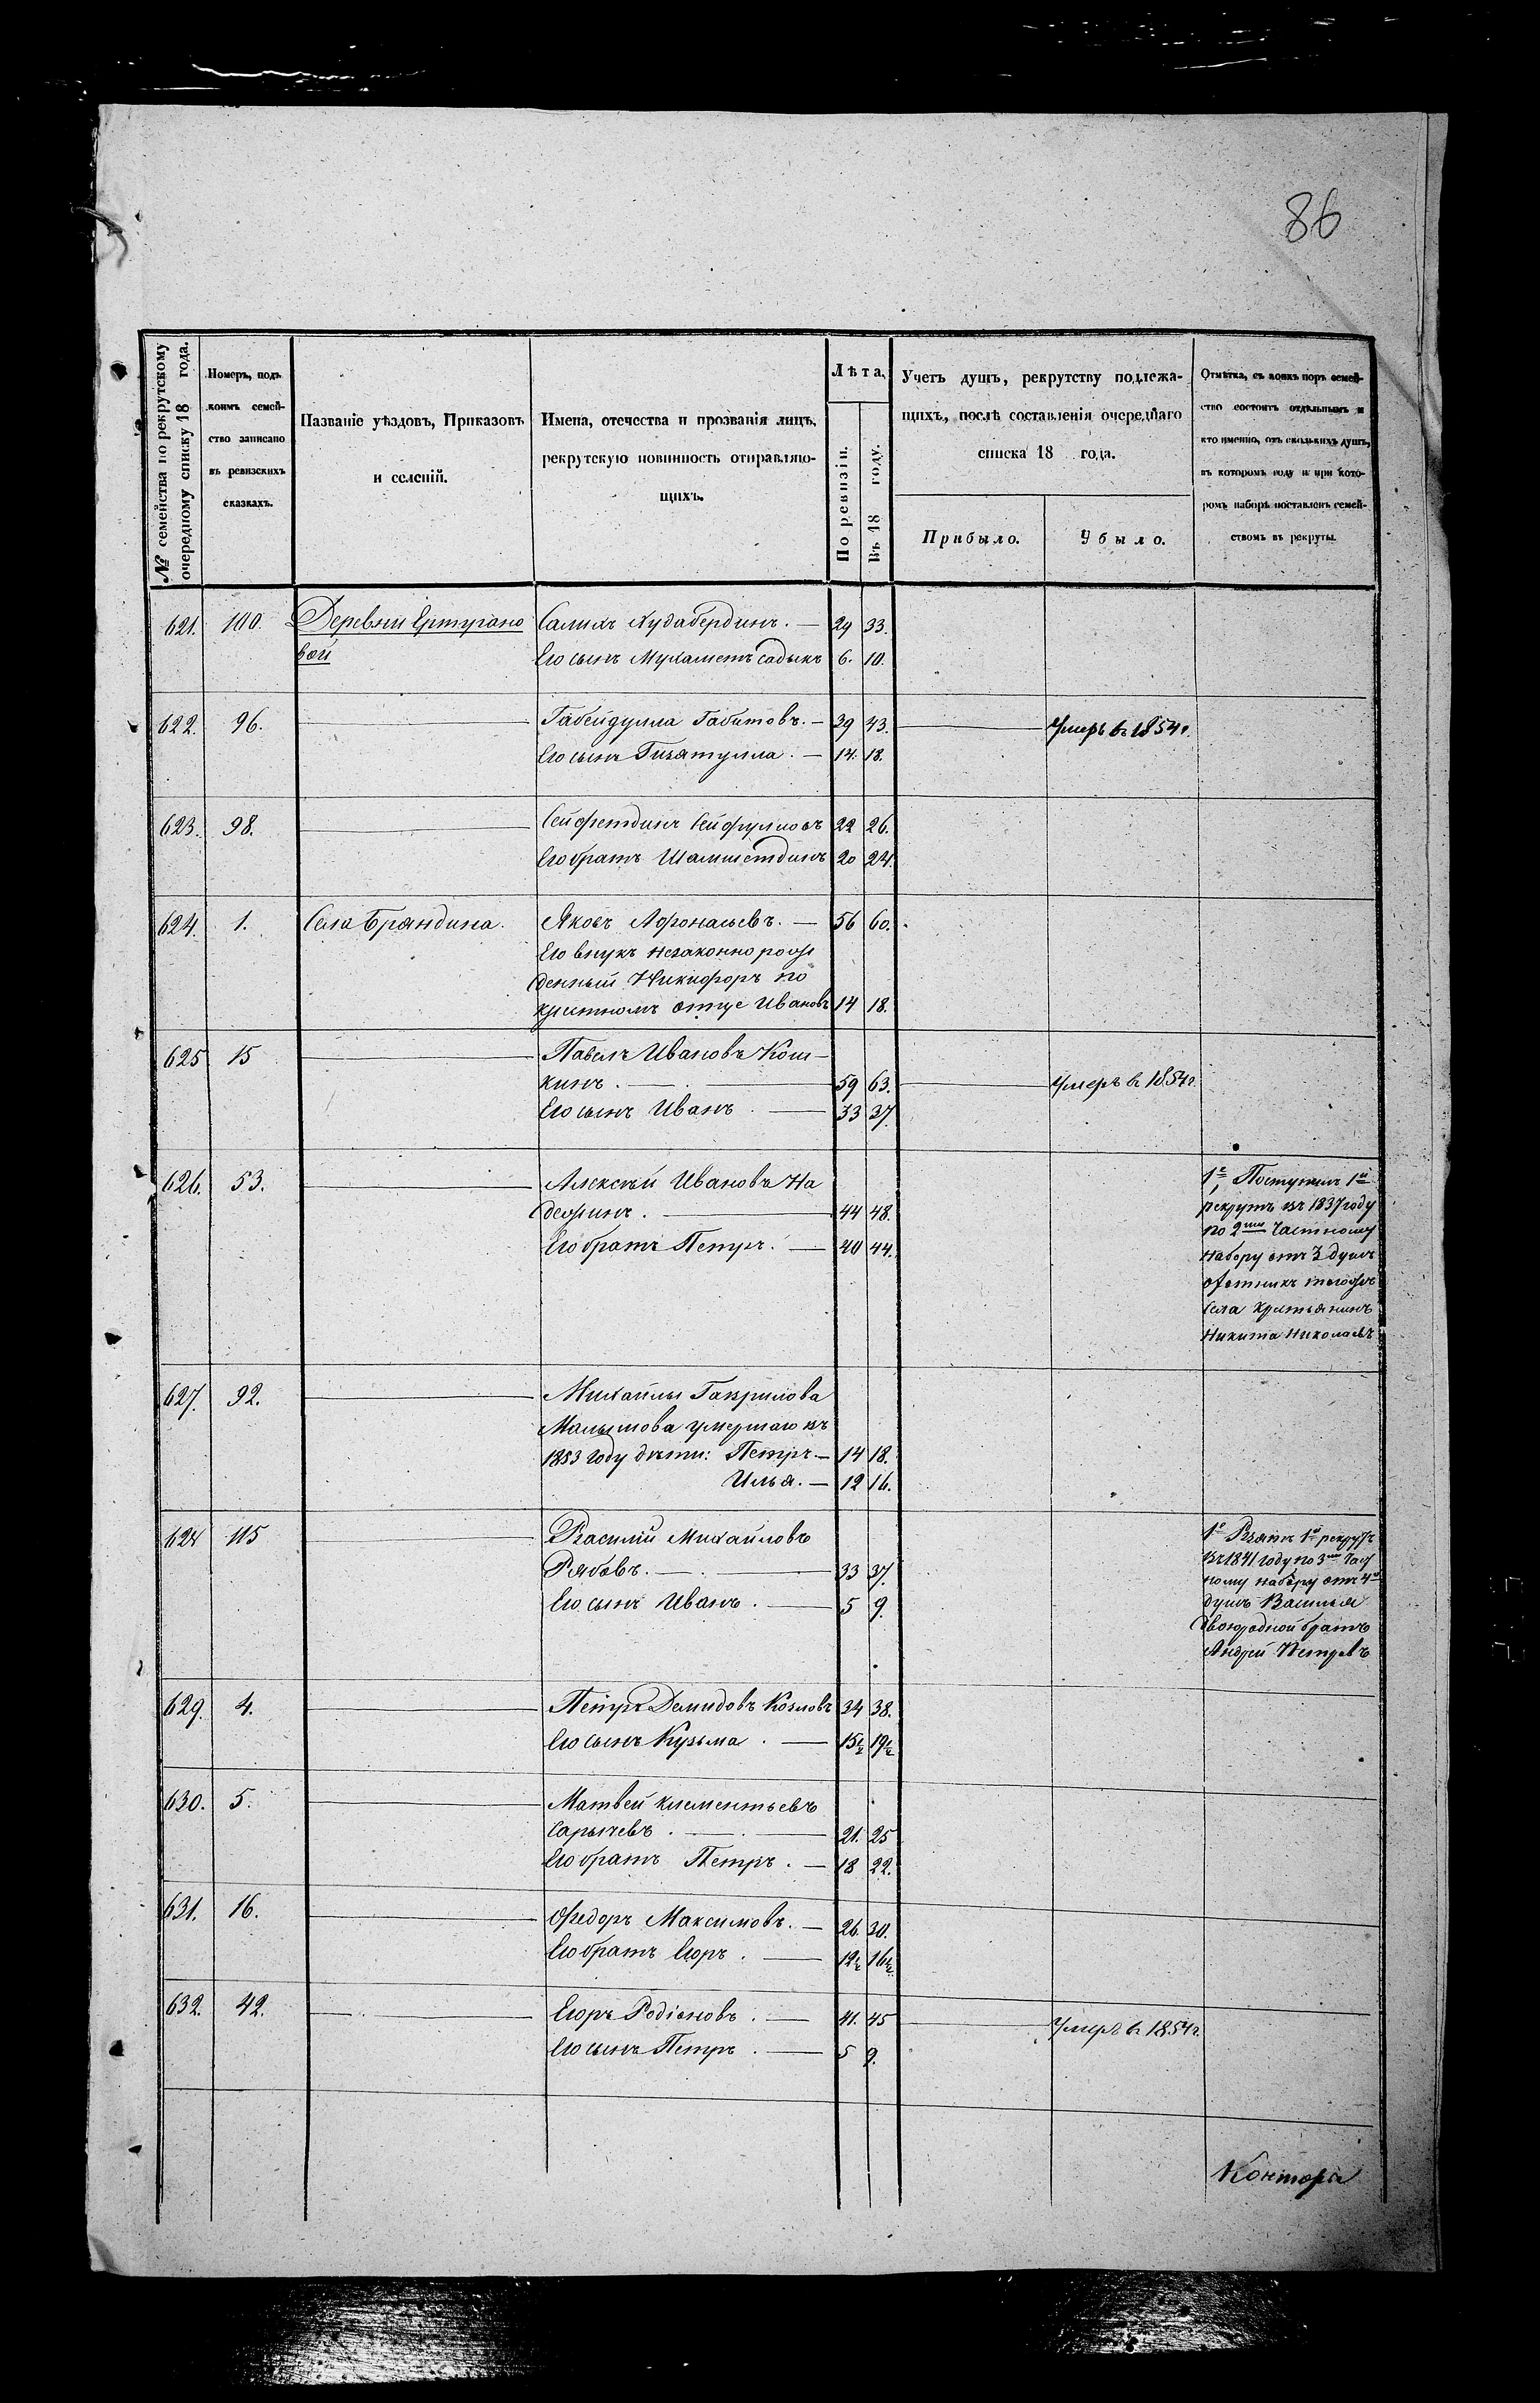 86
№ семейства по рекрутскому очередному списку 18 года.
Номеръ, подъ коимъ семейство записано въ ревизскихъ сказкахъ.
Названіе уѣздовъ, Приказовъ и селеній.
Имена, отечества и прозванія лицъ, рекрутскую повинность отправляющихъ.
Лѣта.
По ревизіи.
Въ 18 году.
Учетъ душъ, рекрутству подлежащихъ, послѣ составленія очереднаго списка 18 года.
Прибыло.
Убыло.
Отмѣтка, съ коихъ поръ семейство состоитъ отдѣльнымъ и кто именно, отъ сколькихъ душъ, въ которомъ году и при которомъ наборѣ поставленъ семействомъ въ рекруты.
621. 100. Деревни Ертугано Салихъ Худабердинъ. — 29 33.
вой Его сынъ Мухаметъ садыкъ 6. 10.
622. 96. Габейдулла Габитовъ. — 39 43. Умеръ въ 1854 г.
Его сынъ Гизятулла. — 14. 18.
623. 98. Сейфетдинъ Сейфулловъ 22 26.
Его братъ Шамшетдинъ 20 24.
624. 1. Села Бряндина. Яковъ Афонасьевъ. — 56 60.
Его внукъ незаконно рож
денный Никифоръ по
крестномъ отце Ивановъ 14 18.
625 15 Павелъ Ивановъ Кош-
кинъ. — 59 63. Умеръ въ 1854 г.
Его сынъ Иванъ. — 33 37.
626. 53. Алексѣй Ивановъ На
дежинъ. — 44 48.
Его братъ Петръ. — 40 44.
1е, Поступилъ 1й
рекрутъ въ 1837 году
по 2му Частному
набору отъ 3 душъ
тогожъ
села крестьянинъ
Никита Николаевъ
627. 92. Михайлы Гаврилова
Малышова умершаго въ
1853 году дѣти: Петръ — 14 18.
Илья. — 12 16.
628 115 Василій Михайловъ
Рябовъ. — 33 37.
Его сынъ Иванъ. — 5 9.
1е Взятъ 1й рекрутъ
въ 1841 году по 3му Част
ному набору отъ 4х
душъ Василья
двоюродной братъ
Андрей Петровъ
629. 4. Петръ Демидовъ Козловъ 34 38.
Его сынъ Кузьма. — 15½ 19½
630. 5. Матвей Клементьевъ
Сарычевъ. — 21. 25
Его братъ Петръ. — 18 22.
631. 16. Федоръ Максимовъ. — 26. 30.
Его братъ Егоръ. — 12½ 16½
632. 42. Егоръ Родіоновъ. — 41. 45 Умеръ въ 1854 г.
Его сынъ Петръ. — 5 9.
Конторы